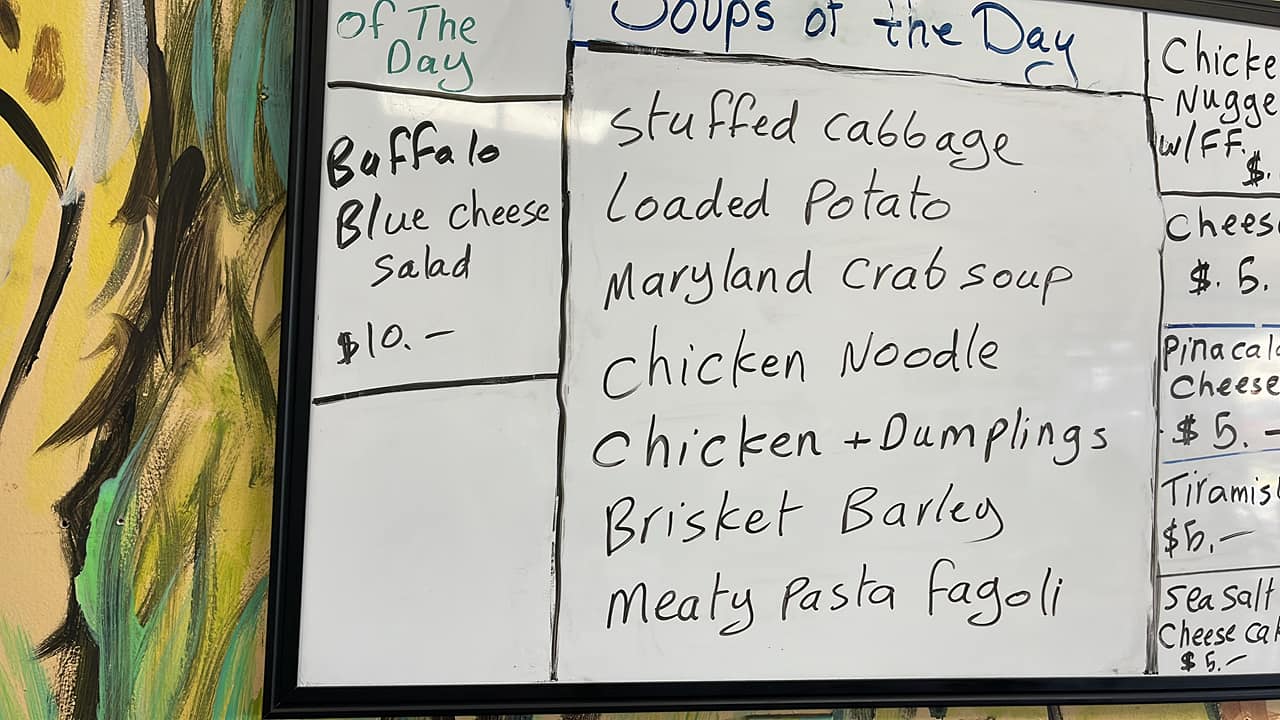 Of The
Day
Buffalo
Blue cheese
salad
$10.-
Soups of the Day
Stuffed cabbage
Loaded Potato
Maryland Crab soup
Chicken Noodle
Chicken + Dumplings
Brisket Barley
Meaty Pasta fagoli
Chicke
Nugge
w/FF.
$.
Chees
$. 5.
Pinacal
Cheese
$5.-
Tiramis
$5.-
Sea Salt
Cheese cak
$5.-